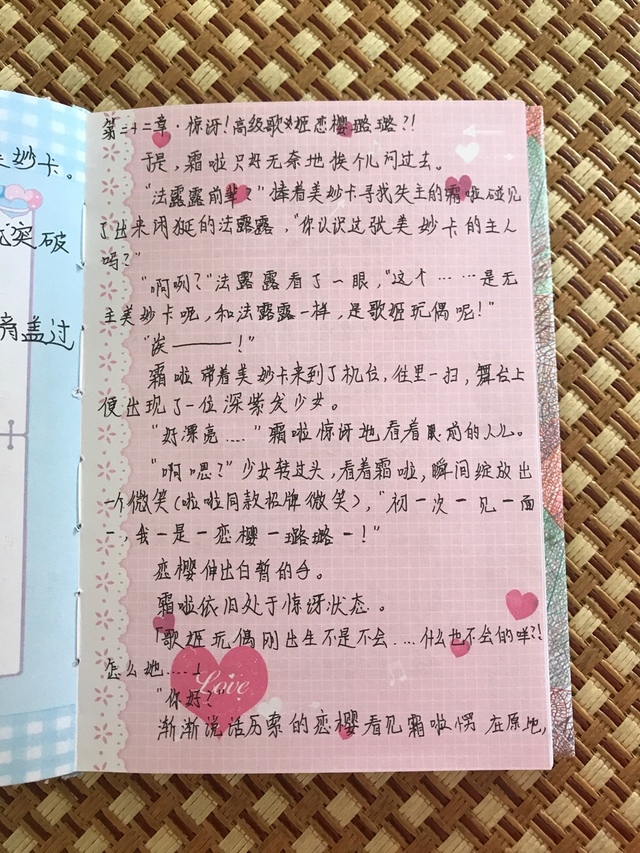 主妙卡。
突破
肩盖过
第二十二章·惊讶!高级歌姬恋樱璐璐?!
于是,霜啦只好无奈地挨个儿问过去。
“法露露前辈?”捧着美妙卡寻找失主的霜啦碰见
了出来闲逛的法露露,“你认识这张美妙卡的主人
吗?”
“啊咧?”法露露看了一眼,“这个……是无
主美妙卡呢,和法露露一样,是歌姬玩偶呢!”
“诶——!”
霜啦带着美妙卡来到了机位,往里一扫,舞台上
便出现了一位深紫发少女。
“好漂亮……”霜啦惊讶地看着眼前的人儿。
“啊嗯?”少女转过头,看着霜啦,瞬间绽放出
一个微笑(啦啦同款招牌微笑),“初一次一见一面
一,我一是一恋樱一璐璐一!”
恋樱伸出白暂的手。
霜啦依旧处于惊讶状态。
「歌姬玩偶刚出生不是不会....什么也不会的咩?!
怎么她....」
Love
“你好?
渐渐说话历索的恋樱看见霜啦愣在原地,